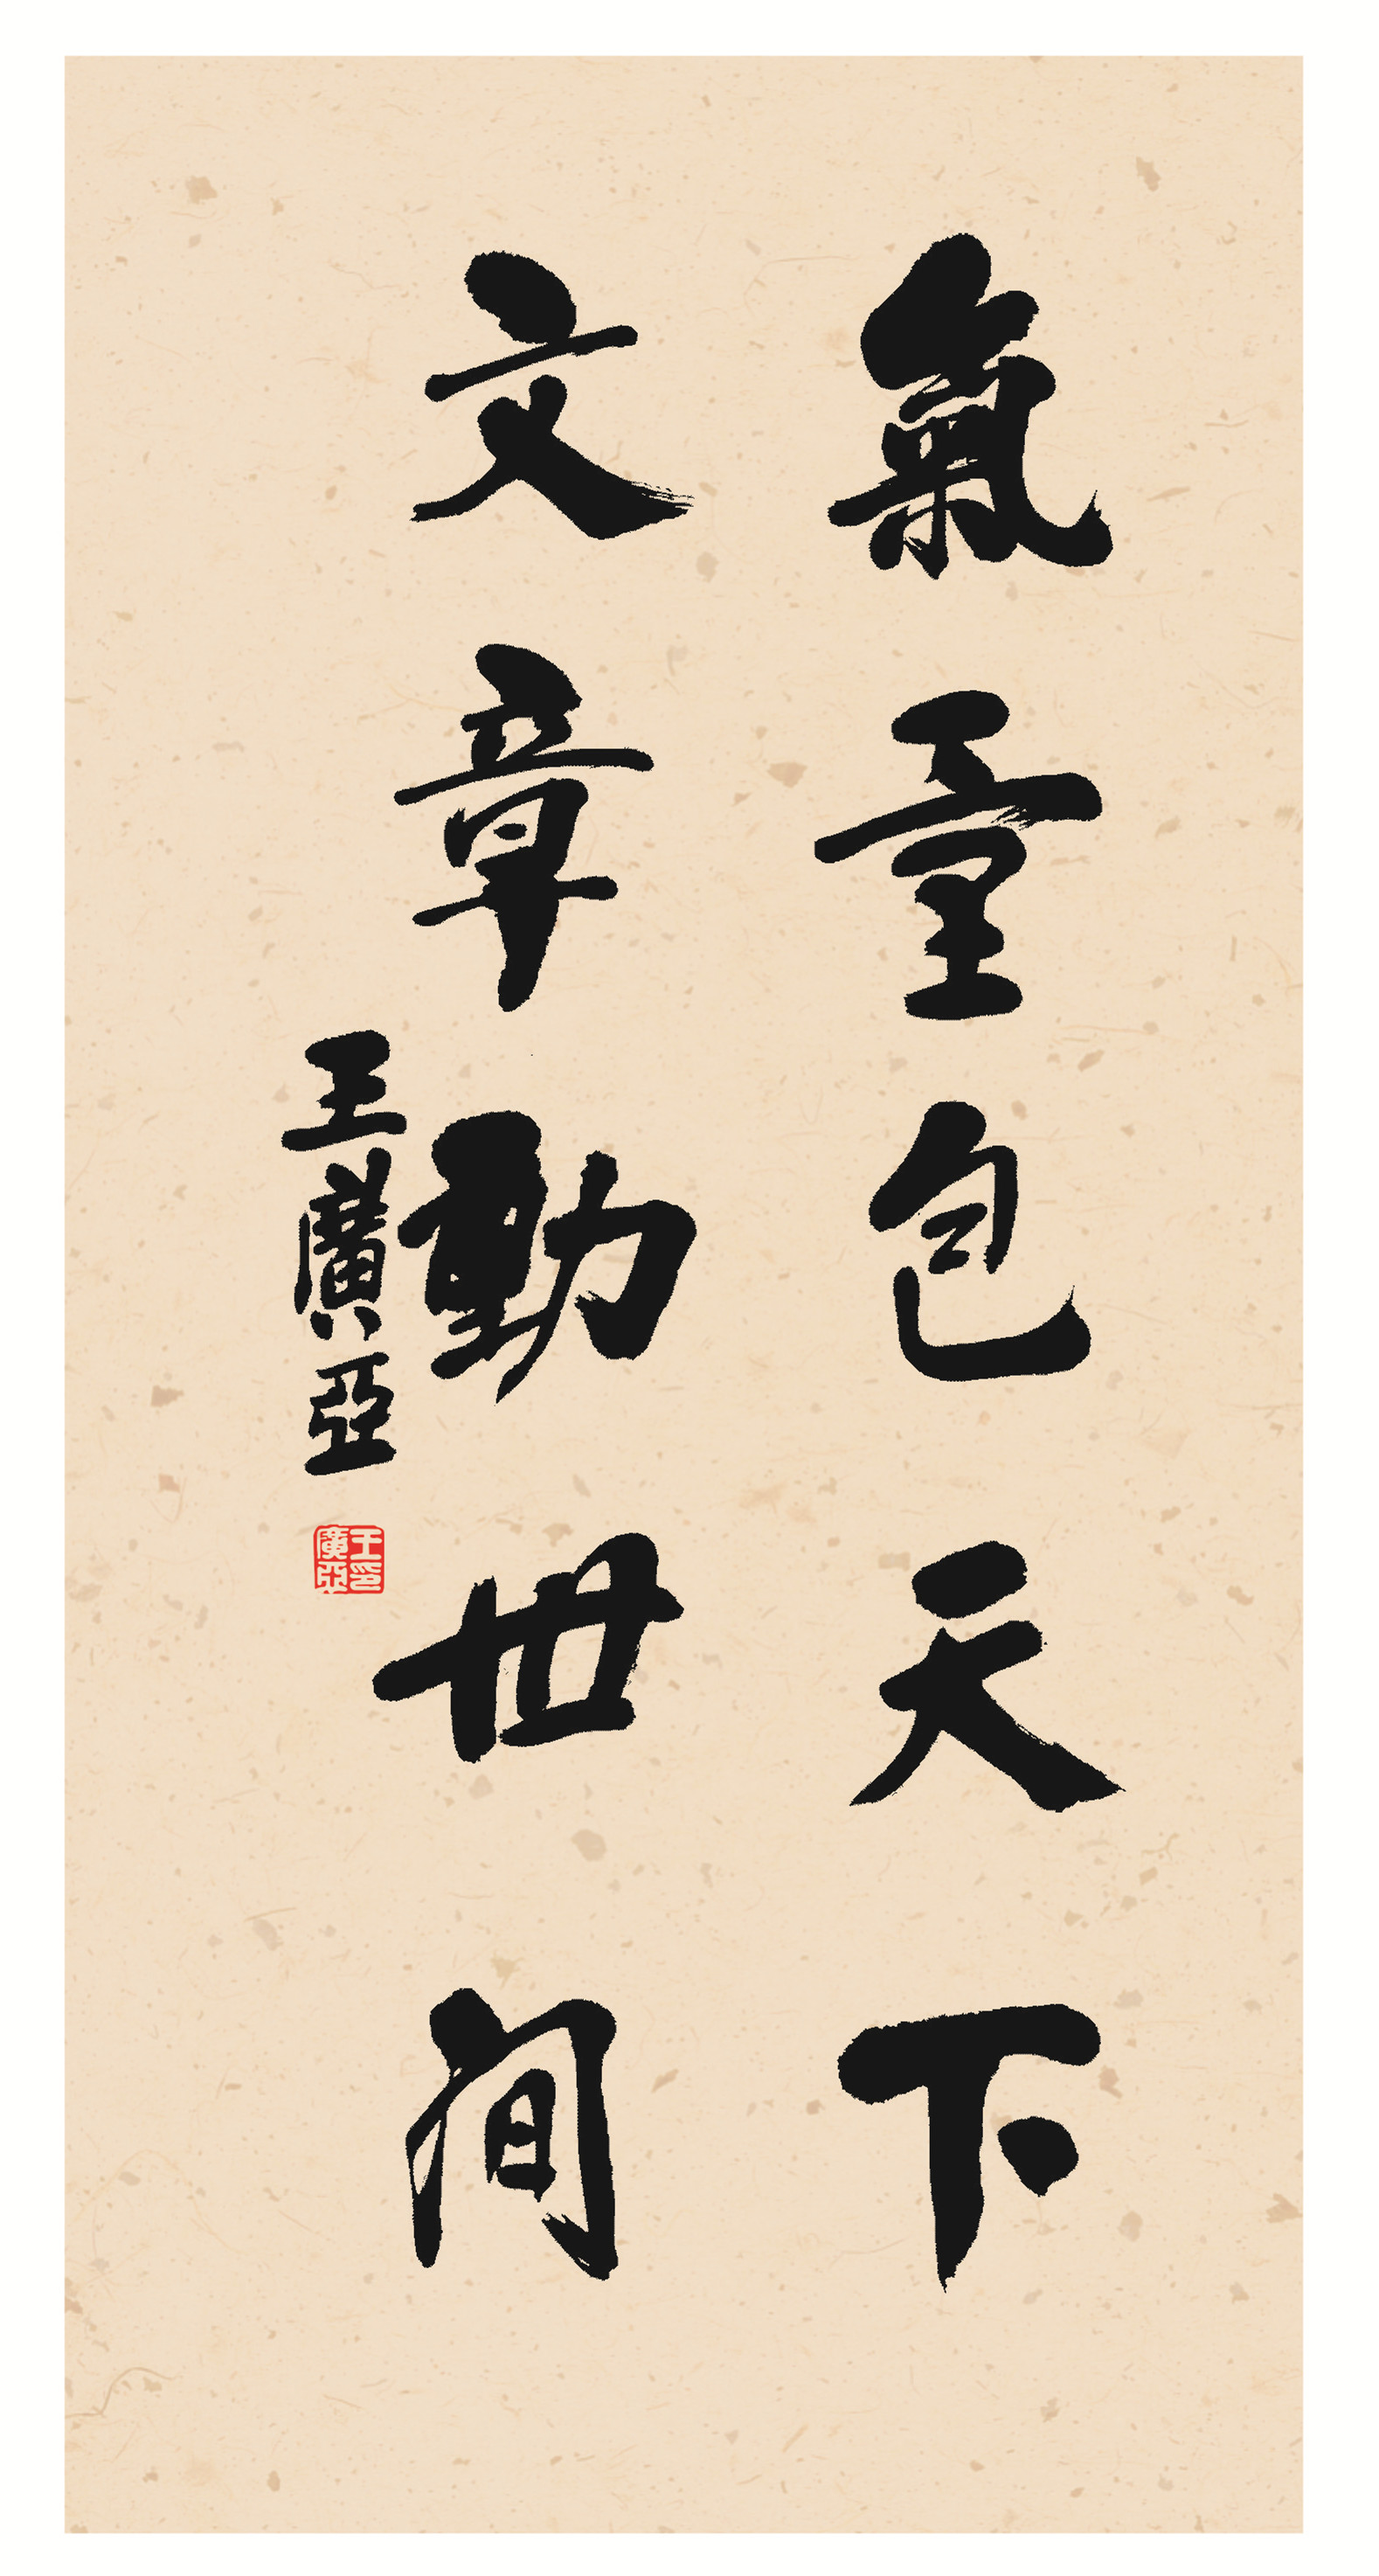 氣量包天下
文章動世間
王廣亞
王印
廣亞